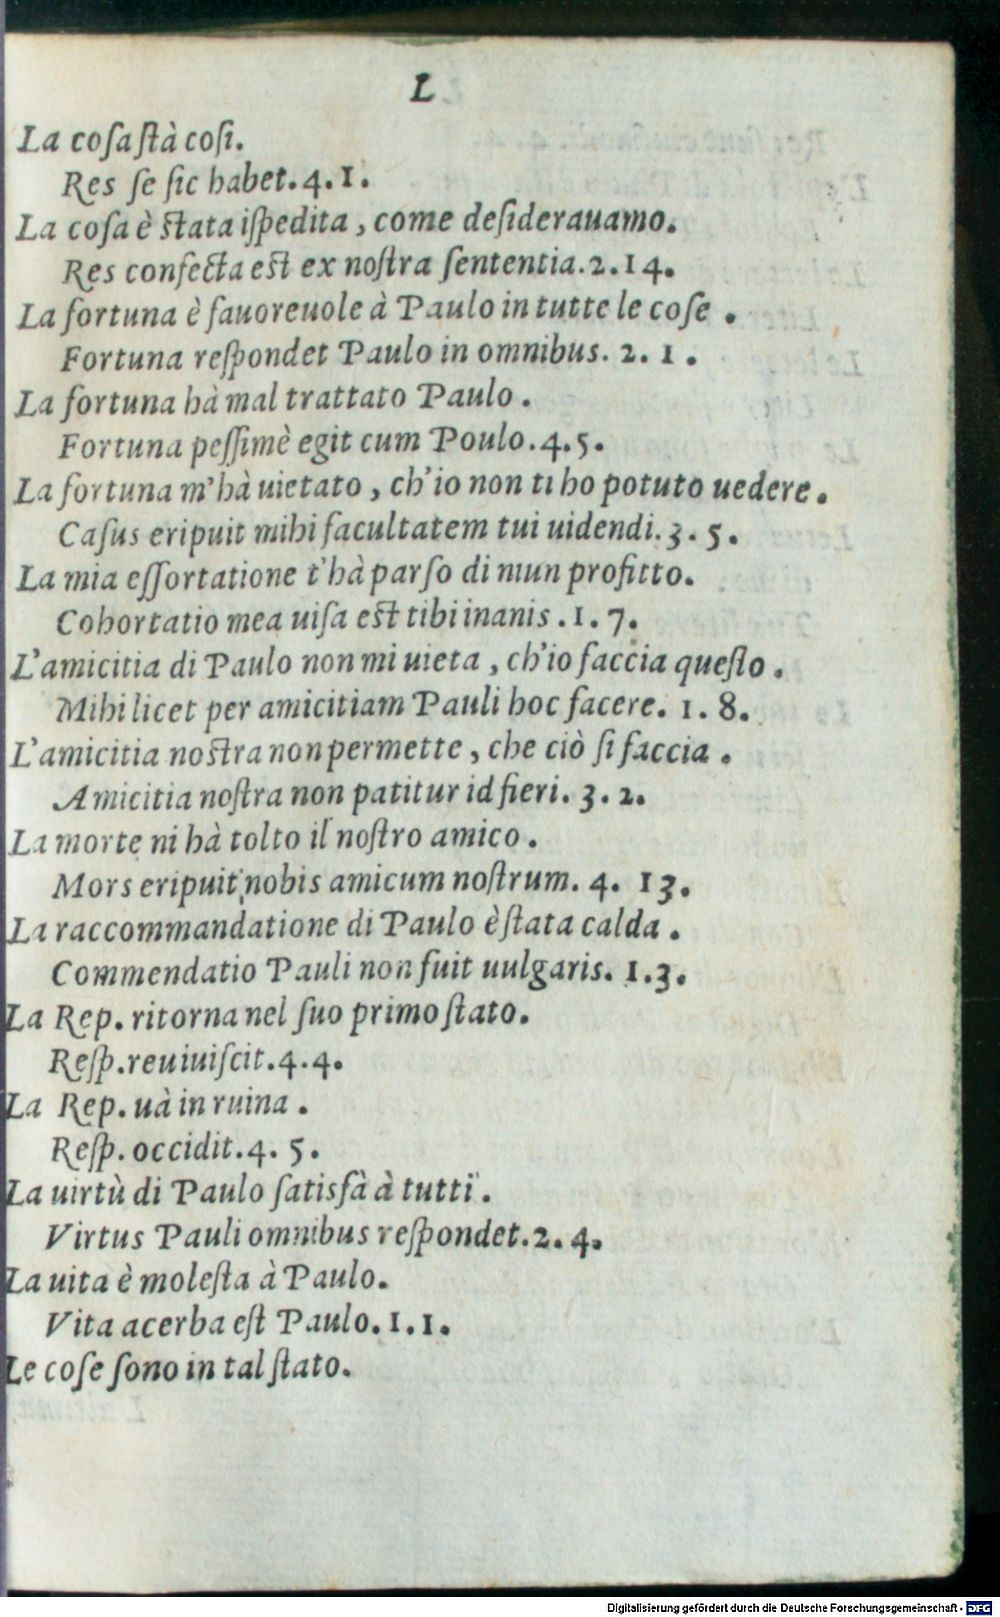 L
La coſa ſtà coſi.
Res ſe ſic habet. 4. 1.
La coſa è ſtata iſpedita, come deſiderauamo.
Res confecta eſt ex noſtra ſententia. 2. 14.
La fortuna è fauoreuole à Paulo in tutte le coſe .
Fortuna reſpondet Paulo in omnibus. 2. 1.
La fortuna hà mal trattato Paulo .
Fortuna peſſimè egit cum Poulo. 4. 5.
La fortuna m'hà uietato, ch'io non ti ho potuto uedere.
Caſus eripuit mihi facultatem tui uidendi. 3. 5.
La mia eſſortatione t'hà parſo di niun profitto.
Cohortatio mea uiſa eſt tibi inanis. 1. 7.
L'amicitia di Paulo non mi uieta, ch'io faccia queſto .
Mihi licet per amicitiam Pauli hoc facere. 1. 8.
L'amicitia noſtra non permette, che ciò ſi faccia .
Amicitia noſtra non patitur id fieri. 3. 2.
La morte ni hà tolto il noſtro amico .
Mors eripuit nobis amicum noſtrum. 4. 13.
La raccommandatione di Paulo è ſtata calda .
Commendatio Pauli non fuit uulgaris. 1. 3.
La Rep. ritorna nel ſuo primo ſtato.
Reſp. reuiuiſcit. 4. 4.
La Rep. uà in ruina .
Reſp. occidit. 4. 5.
La uirtù di Paulo ſatisfà à tutti .
Virtus Pauli omnibus reſpondet. 2. 4.
La uita è moleſta à Paulo.
Vita acerba eſt Paulo. 1. 1.
Le coſe ſono in tal ſtato.
Digitalisierung gefördert durch die Deutsche Forschungsgemeinschaft - DFG